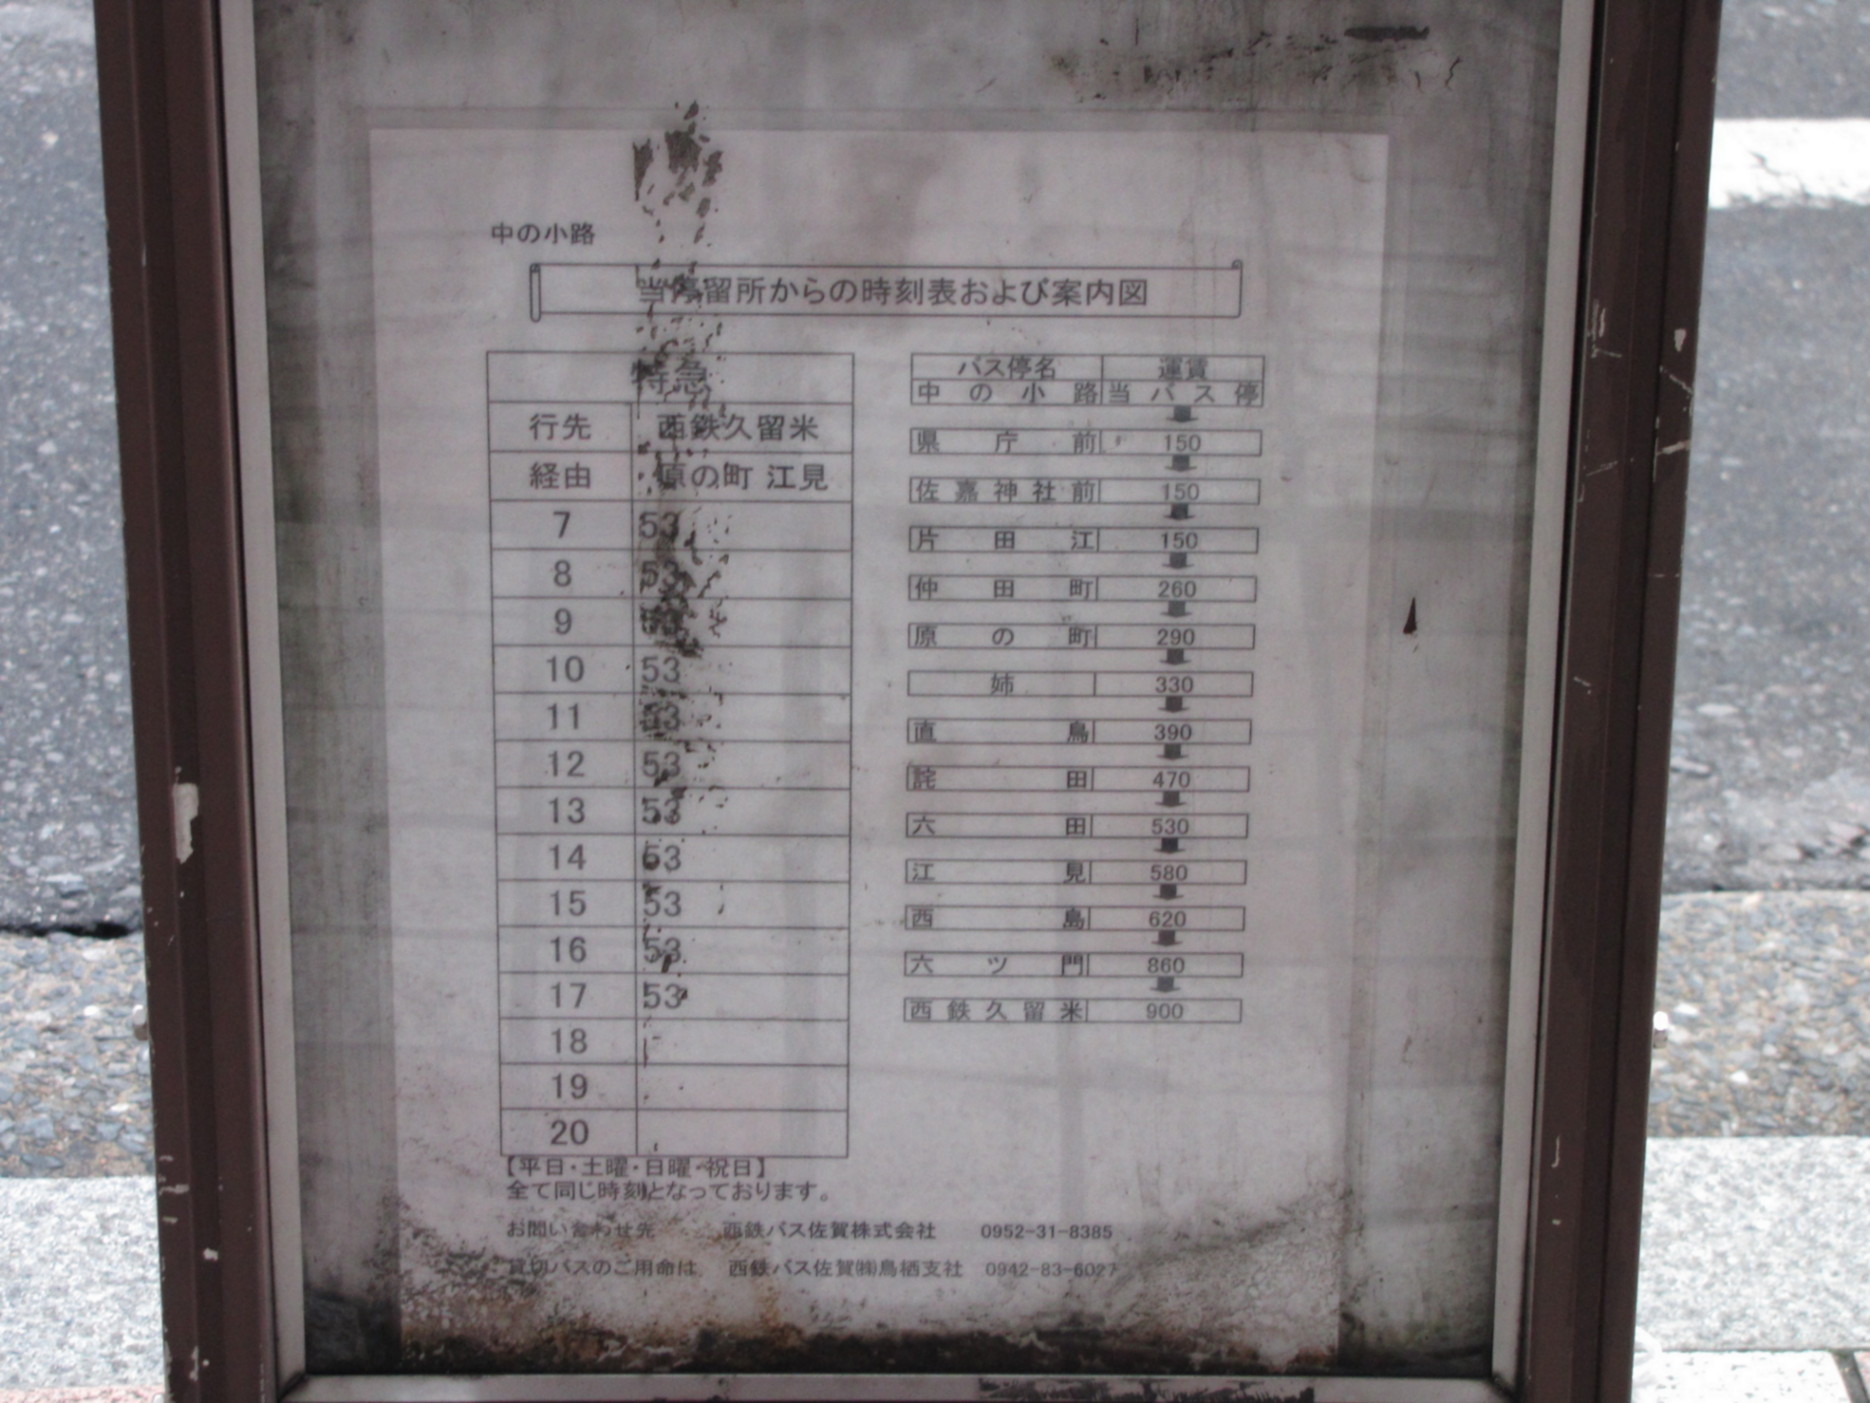 中の小路
当停留所からの時刻表および案内図
特急
行先 西鉄久留米
経由 原の町 江見
7 53
8 53
9
10 53
11 53
12 53
13 53
14 53
15 53
16 53
17 53
18
19
20
【平日・土曜・日曜・祝日】
全て同じ時刻となっております。
バス停名 運賃
中の小路 当バス停
県庁前 150
佐嘉神社前 150
片田江 150
仲田町 260
原の町 290
姉 330
直鳥 390
詫田 470
六田 530
江見 580
西島 620
六ツ門 860
西鉄久留米 900
お問い合わせ先 西鉄バス佐賀株式会社 0952-31-8385
貸切バスのご用命は 西鉄バス佐賀㈱鳥栖支社 0942-83-6027